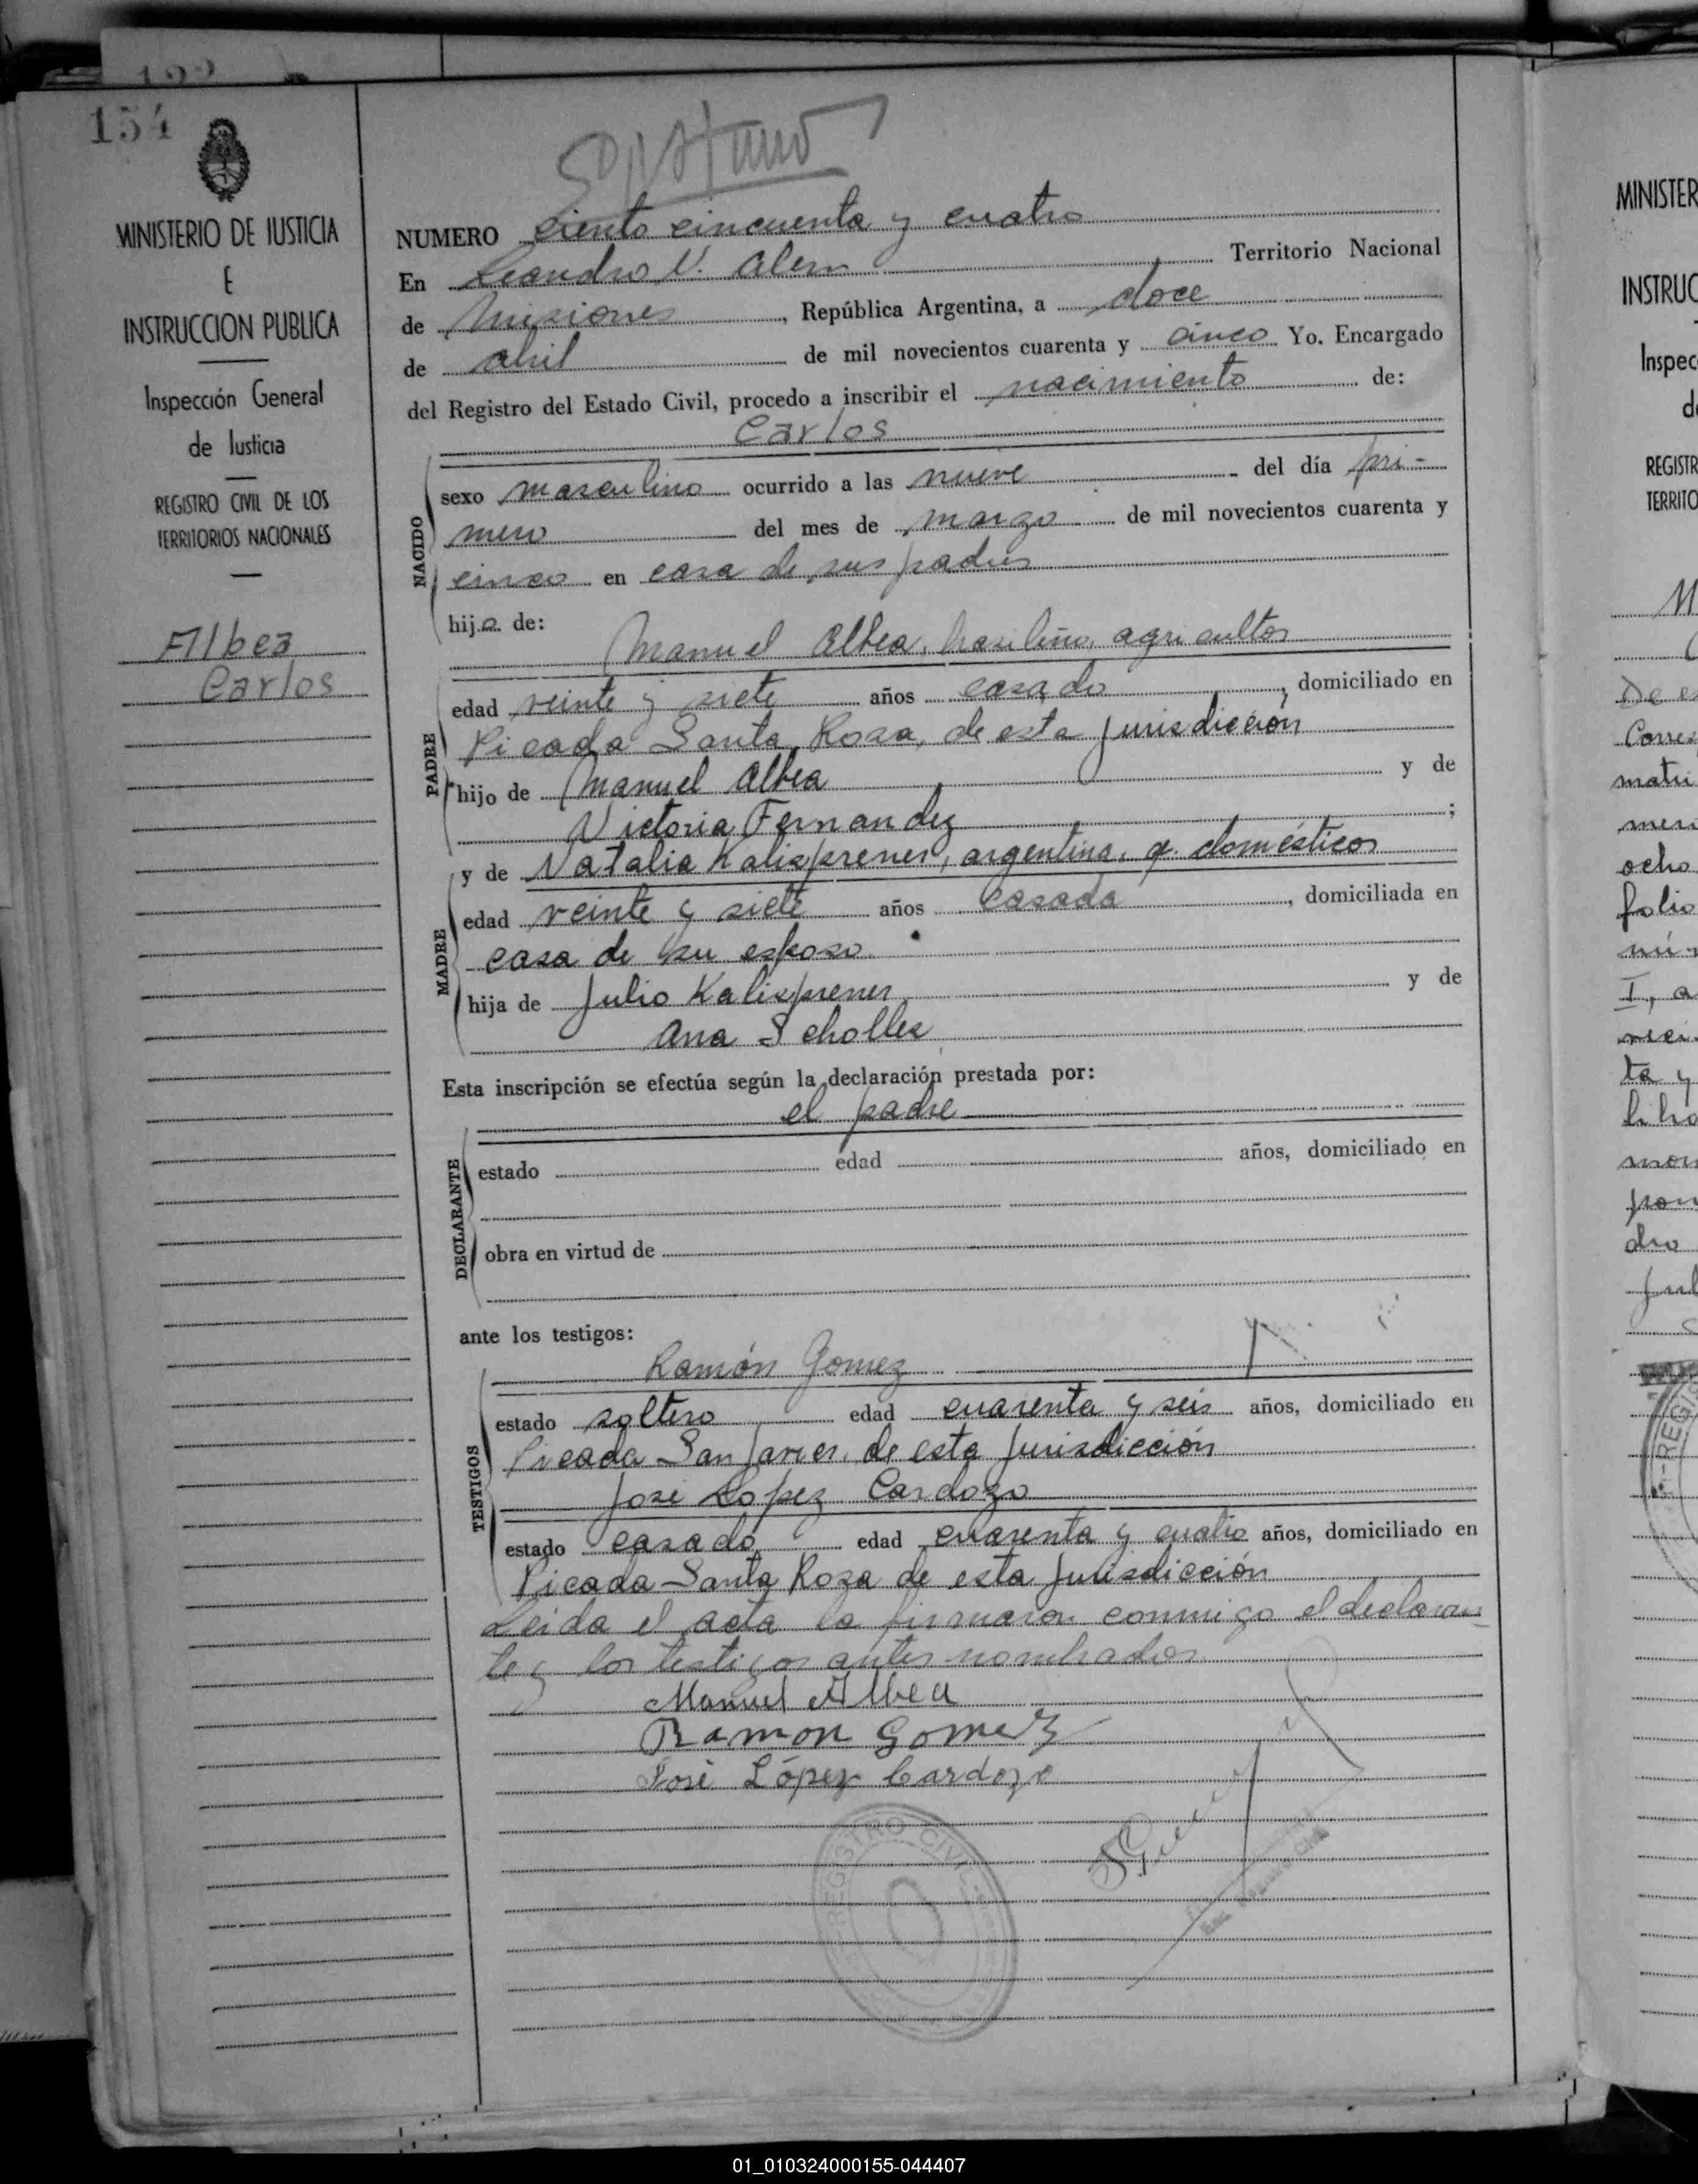 154
MINISTERIO DE JUSTICIA
E
INSTRUCCION PUBLICA
Inspección General
de Justicia
REGISTRO CIVIL DE LOS
TERRITORIOS NACIONALES
Albea
Carlos
NUMERO ciento cincuenta y cuatro
En Leandro N. Alem Territorio Nacional
de Misiones, República Argentina, a doce
de abril de mil novecientos cuarenta y cinco Yo. Encargado
del Registro del Estado Civil, procedo a inscribir el nacimiento de:
Carlos
NACIDO
sexo masculino ocurrido a las nueve del día pri-
mero del mes de marzo de mil novecientos cuarenta y
cinco en casa de sus padres
hijo de:
Manuel Albea, brasileño, agricultor
PADRE
edad veinte y siete años casado, domiciliado en
Picada Santa Rosa, de esta jurisdicción
hijo de Manuel Albea y de
Victoria Fernandez;
y de Natalia Kalisprener, argentina, q. domésticos
MADRE
edad veinte y siete años casada, domiciliada en
casa de su esposo
hija de Julio Kalisprener y de
Ana Scholles
Esta inscripción se efectúa según la declaración prestada por:
el padre
DECLARANTE
estado edad años, domiciliado en
obra en virtud de
ante los testigos:
Ramón Gomez
TESTIGOS
estado soltero edad cuarenta y seis años, domiciliado en
Picada San Javier, de esta jurisdicción
José Lopez Cardozo
estado casado edad cuarenta y cuatro años, domiciliado en
Picada Santa Rosa de esta jurisdicción
Leída el acta la firmaron conmigo el declaran-
te y los testigos antes nombrados
Manuel Albea
Ramon Gomez
José López Cardozo
REGISTRO CIVIL
MINISTER
INSTRUC
Inspec
REGISTR
TERRITO
01_010324000155-044407